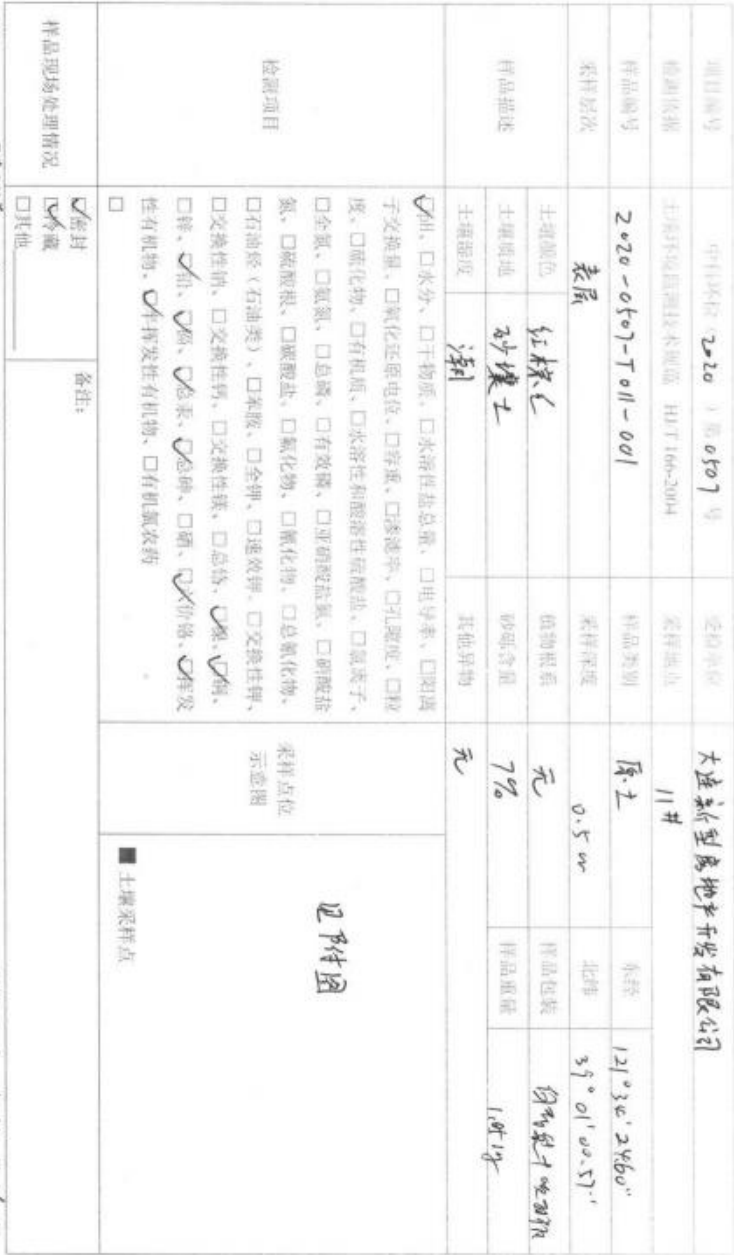 项目编号 中科环检（2020）第0507号 受检单位 大连新型房地产开发有限公司
检测依据 土壤环境监测技术规范 HJ/T 166-2004 采样地点 11#
样品编号 2020-0507-T011-001 样品类别 原土 东经 121°34'24.60"
采样层次 表层 采样深度 0.5m 北纬 39°01'00.57"
样品描述 土壤颜色 红棕色 植物根系 无 样品包装
土壤质地 砂壤土 砂砾含量 7% 样品重量
土壤湿度 潮 其他异物 无
检测项目
☑pH、□水分、□干物质、□水溶性盐总量、□电导率、□阳离
子交换量、□氧化还原电位、□容重、□渗滤率、□孔隙度、□粒
度、□硫化物、□有机质、□水溶性和酸溶性硫酸盐、□氯离子、
□全氮、□氨氮、□总磷、□有效磷、□亚硝酸盐氮、□硝酸盐
氮、□硫酸根、□碳酸盐、□氟化物、□氰化物、□总氰化物、
□石油烃（石油类）、□苯胺、□全钾、□速效钾、□交换性钾、
□交换性钠、□交换性钙、□交换性镁、□总铬、☑镍、☑铜、
□锌、☑铅、☑镉、☑总汞、☑总砷、□硒、☑六价铬、☑挥发
性有机物、☑半挥发性有机物、□有机氯农药
□
采样点位
示意图
见附图
■ 土壤采样点
样品现场处理情况
☑密封
☑冷藏
□其他
备注：